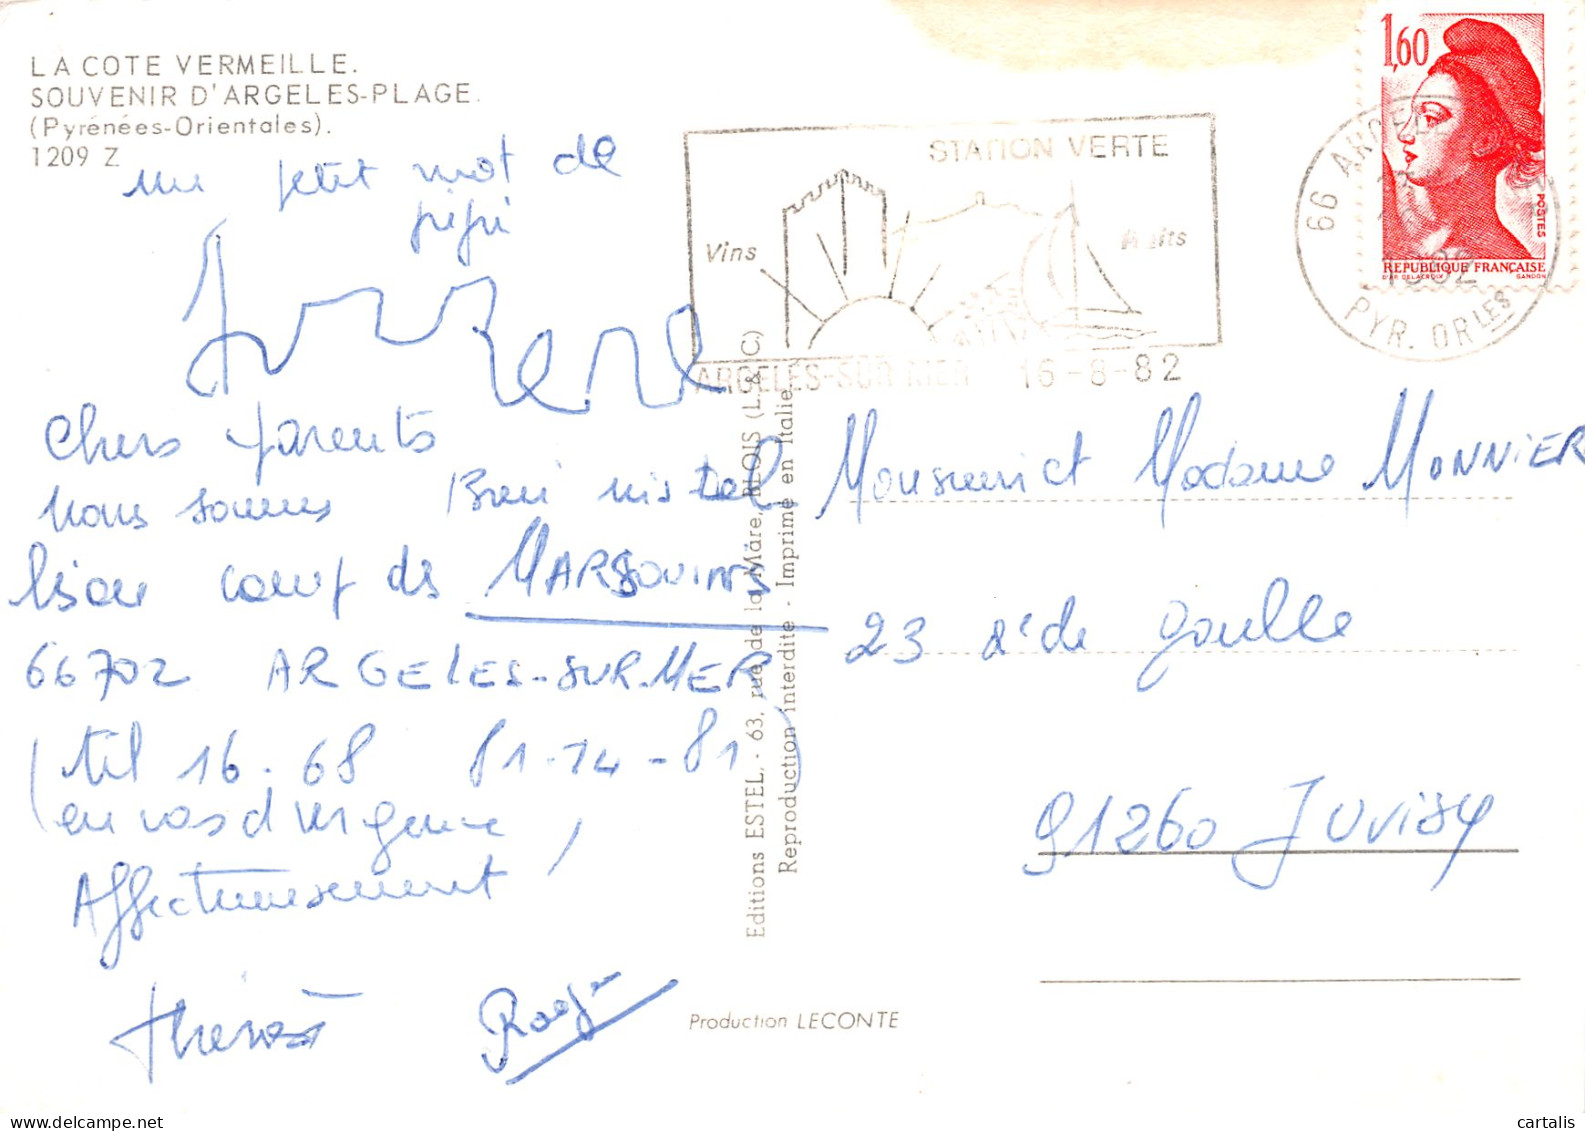 LA COTE VERMEILLE.
SOUVENIR D'ARGELES-PLAGE.
(Pyrénées-Orientales).
1209 Z
un petit mot de
pépé
Chers parents
nous sommes Bien
66702 ARGELES-SUR-MER
(tél 16.68 81-14-81)
(en cas d urgence,
Affectueusement
Thérèse Roger
MARSOUINS
Editions ESTEL. - 63, rue de la Mare, BLOIS (L. & C.)
Reproduction interdite - Imprimé en Italie.
Production LECONTE
STATION VERTE
Vins
Fruits
ARGELES-SUR-MER 16-8-82
66 ARGEL
1982
PYR. ORLES
1,60
POSTES
REPUBLIQUE FRANÇAISE
D'AP. DELACROIX GANDON
Monsieur et Madame MONNIER
23 r. de Gaulle
91260 Juvisy
cartalis
www.delcampe.net